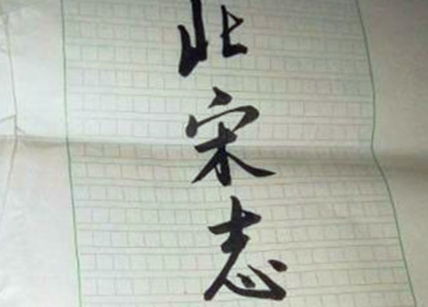 北宋志